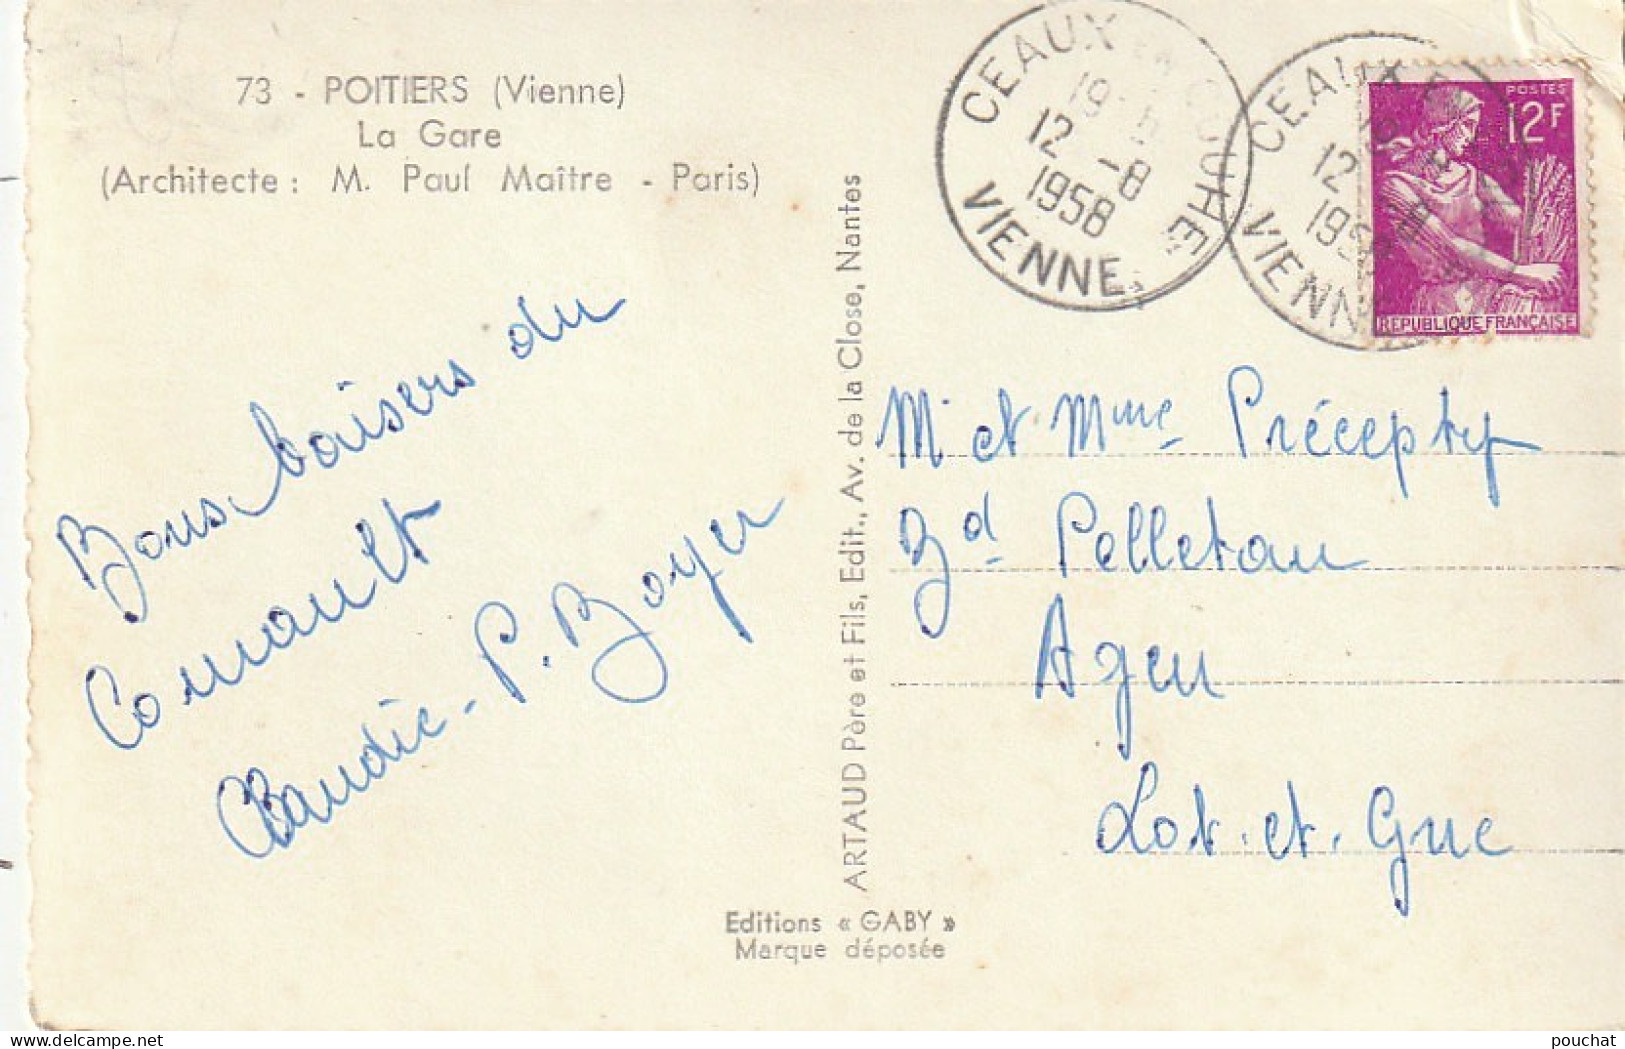 73 - POITIERS (Vienne)
La Gare
(Architecte : M. Paul Maître - Paris)
Bons baisers du
Claudie - P. Boyer
ARTAUD Père et Fils, Edit., Av. de la Close, Nantes
Editions « GABY »
Marque déposée
CEAUX EN COUHE
12 -8
1958
VIENNE
CEAUX
12
VIENNE
POSTES
12F
REPUBLIQUE FRANÇAISE
Mr et Mme Précepty
Bd Pelletan
Agen
Lot-et-Gne
pouchat